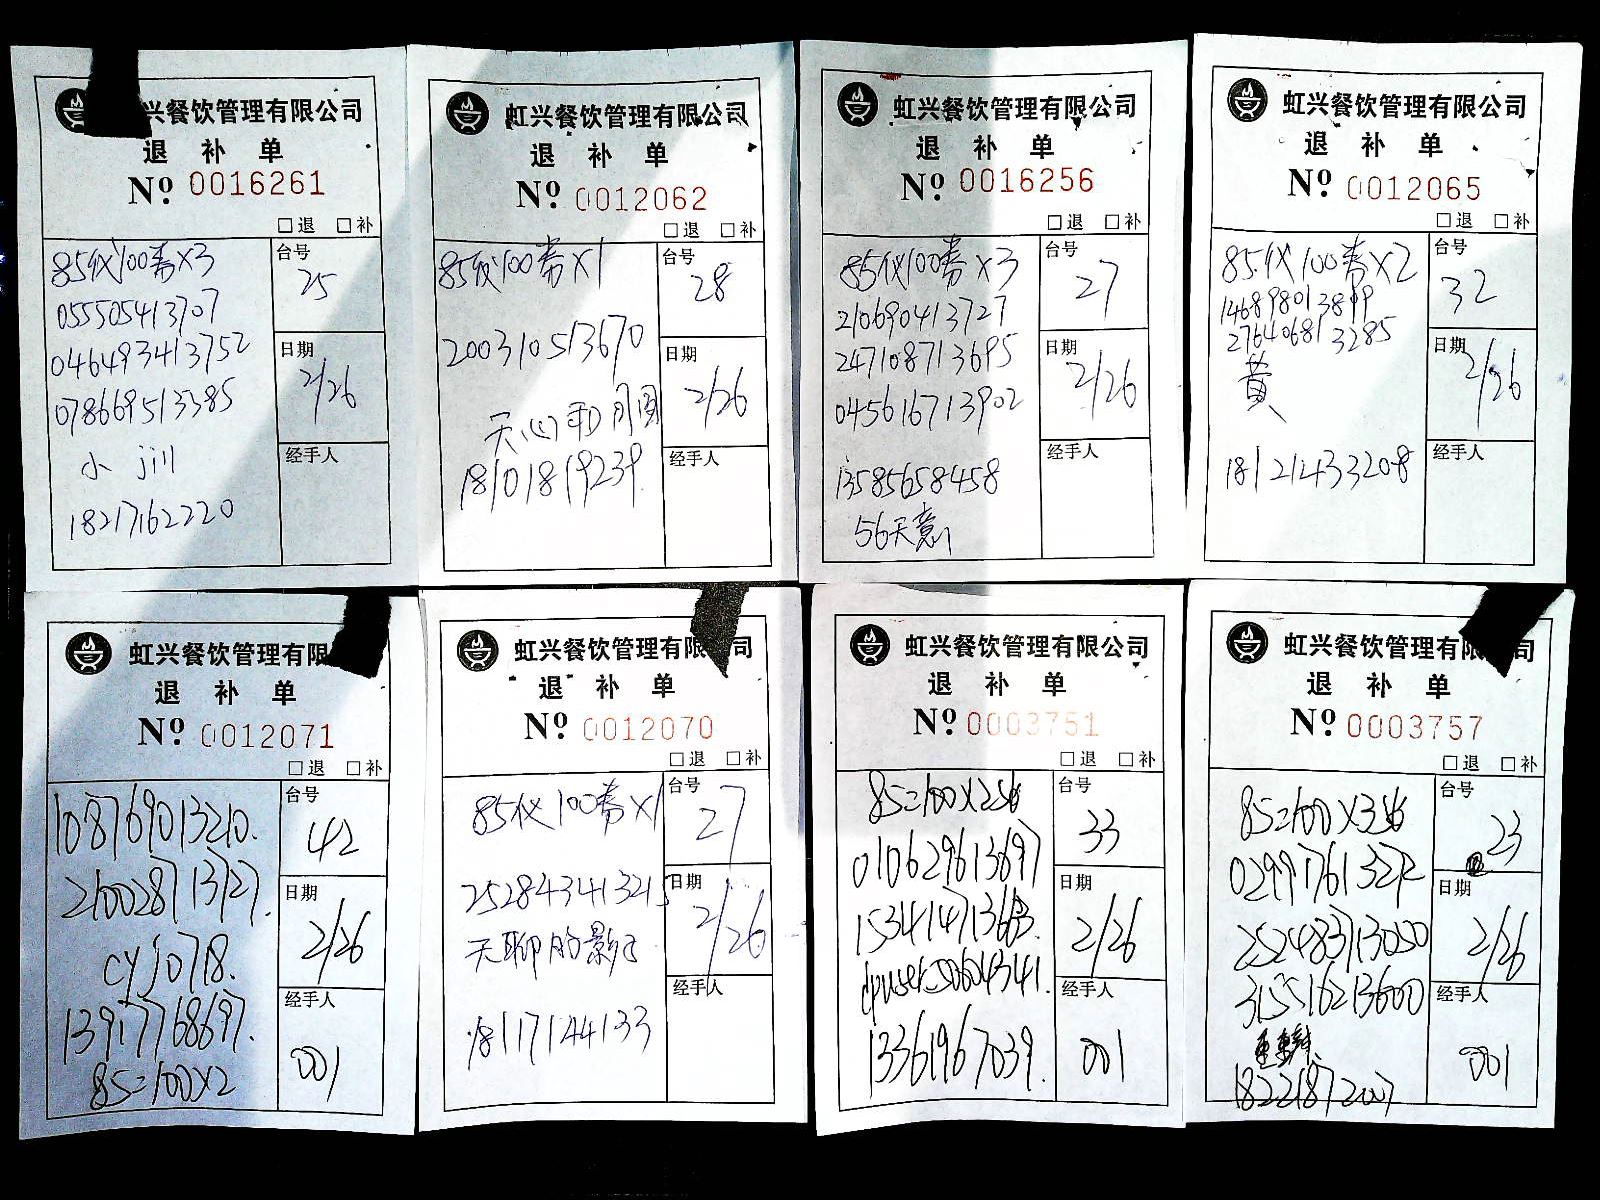 兴餐饮管理有限公司
退 补 单
Nº 0016261
□退 □补
85代100券×3
055505413707
046493413752
078669513385
小 jill
18217162220
台号
25
日期
2/26
经手人
虹兴餐饮管理有限公司
退 补 单
Nº 0012062
□退 □补
85代100券×1
200310513670
天心和月圆
18101819239
台号
28
日期
2/26
经手人
虹兴餐饮管理有限公司
退 补 单
Nº 0016256
□退 □补
85代100券×3
210690413727
247108713695
045616713902
13585658458
56天意
台号
27
日期
2/26
经手人
虹兴餐饮管理有限公司
退 补 单
Nº 0012065
□退 □补
85代100券×2
146898013899
276406813285
黄
18121433208
台号
32
日期
2/26
经手人
虹兴餐饮管理有限
退 补 单
Nº 0012071
□退 □补
108769013210.
210028713127.
cyj0718.
13917768697.
85=100×2
台号
42
日期
2/26
经手人
001
虹兴餐饮管理有限司
退 补 单
Nº 0012070
□退 □补
85代100券×1
252843413215
天聊的影子
18117144133
台号
27
日期
2/26
经手人
虹兴餐饮管理有限公司
退 补 单
Nº 0003751
□退 □补
85=100×2
010629613697
153414713683.
13361967039.
台号
33
日期
2/26
经手人
001
虹兴餐饮管理有限司
退 补 单
Nº 0003757
□退 □补
85=100×3
029917613272
252483713050
315516213600
18221872007
台号
23
日期
2/26
经手人
001